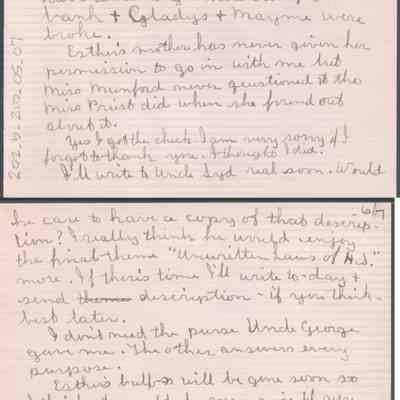 bank + Gladys + Mayme were
broke.
Esther's mother has never given her
permission to go in with me but
Miss Munford never questioned it tho
Miss Brist did when she found out
about it.
Yes I got the check I am very sorry if I
forgot to thank you. I thought I did.
I'll write to Uncle Syd real soon. Would
202_b_210_05_07
6/7
he care to have a copy of that descrip-
tion? I really think he would enjoy
the final theme "Unwritten Laws of H.S."
more. If there's time I'll write to-day +
send description - if you think
best later.
I don't need the purse Uncle George
gave me. The other answers every
purpose.
Esther's bulbs will be gone soon so